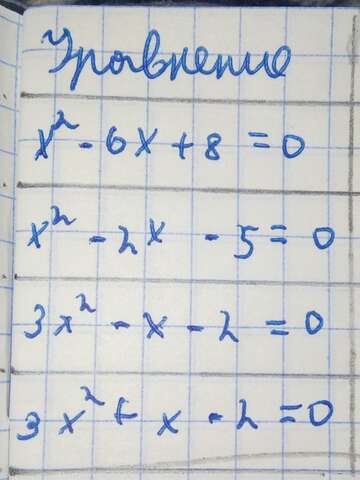 Уравнение
x² - 6x + 8 = 0
x² - 2x - 5 = 0
3x² - x - 2 = 0
3x² + x - 2 = 0